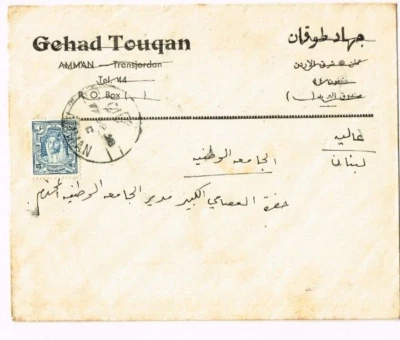 Gehad Touqan
AMMAN — Transjordan
Tel. 44
P. O. Box ( )
جهاد طوقان
عمان شرق الاردن
تلفون ٤٤
صندوق البريد ( )
عاليه
لبنان
الجامعه الوطنيه
حضرة العصامي الكبير مدير الجامعه الوطنيه المحترم